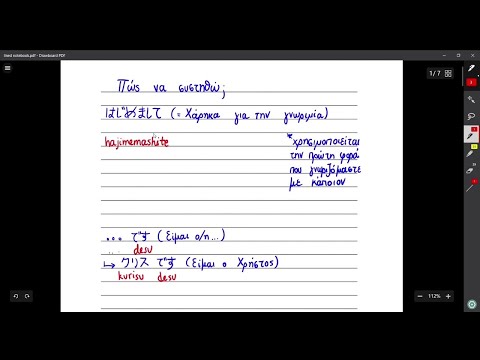 lined notebook.pdf - Drawboard PDF
1 / 7
Πώς να συστηθώ;
はじめまして (= Χάρηκα για την γνωριμία)
hajimemashite
*χρησιμοποιείται
την πρώτη φορά
που γνωριζόμαστε
με κάποιον
... です (είμαι ο/η...)
... desu
↳ クリス です (είμαι ο Χρήστος)
kurisu desu
112%